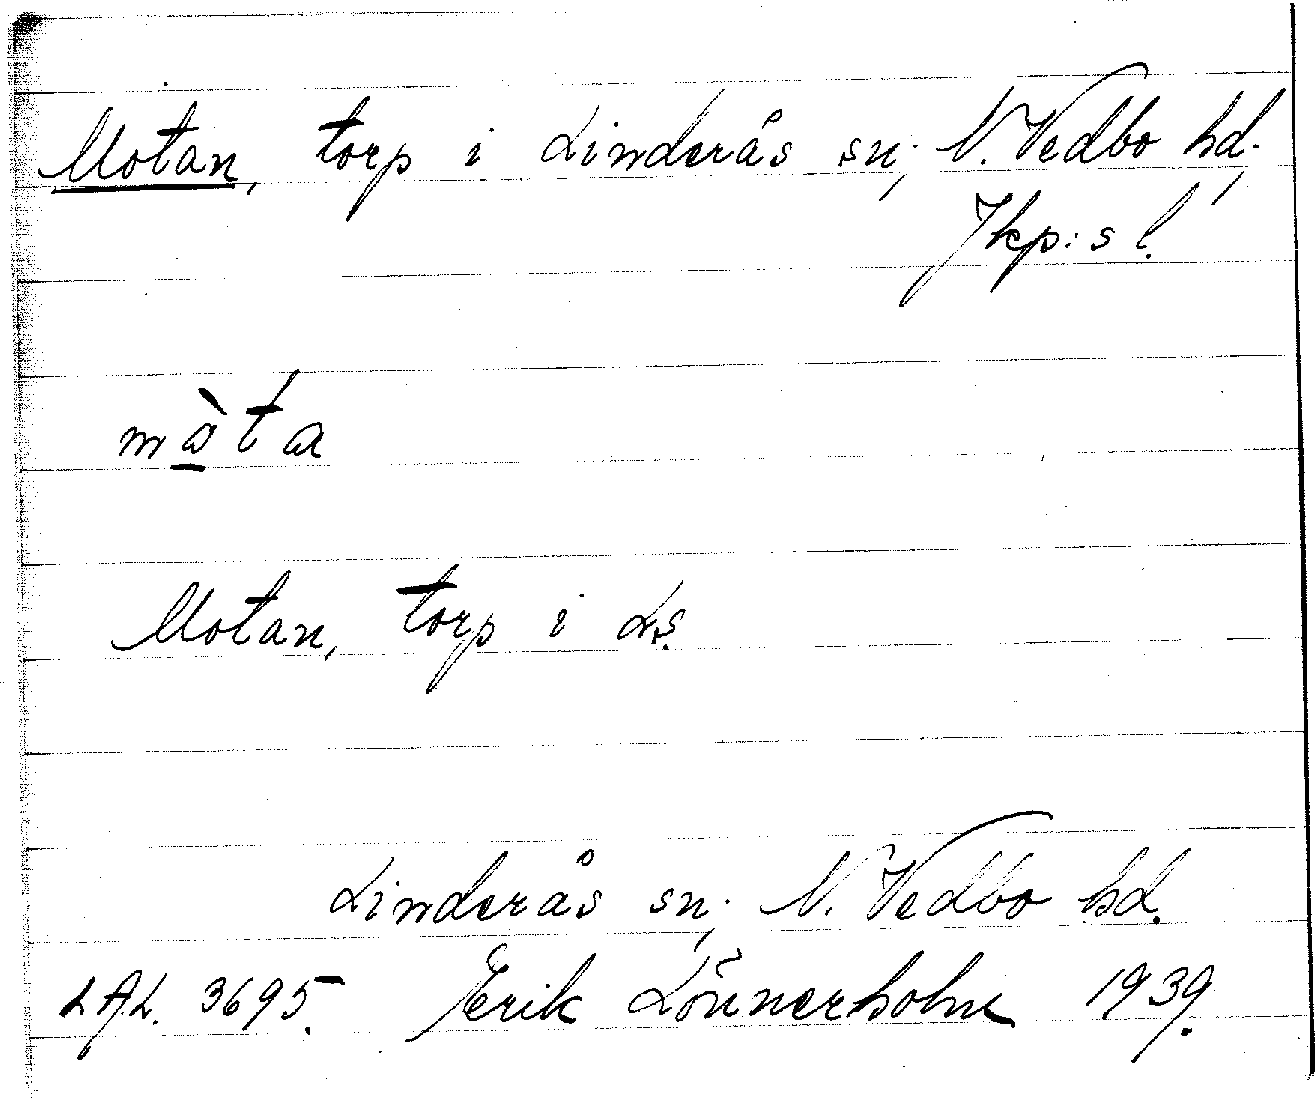 Motan, torp i Linderås sn; N. Vedbo hd.,
Jkp:s l.
mò̱ta
Motan, torp i Ls.
Linderås sn; N. Vedbo hd.
LAL. 3695. Erik Lönnerholm 1939.